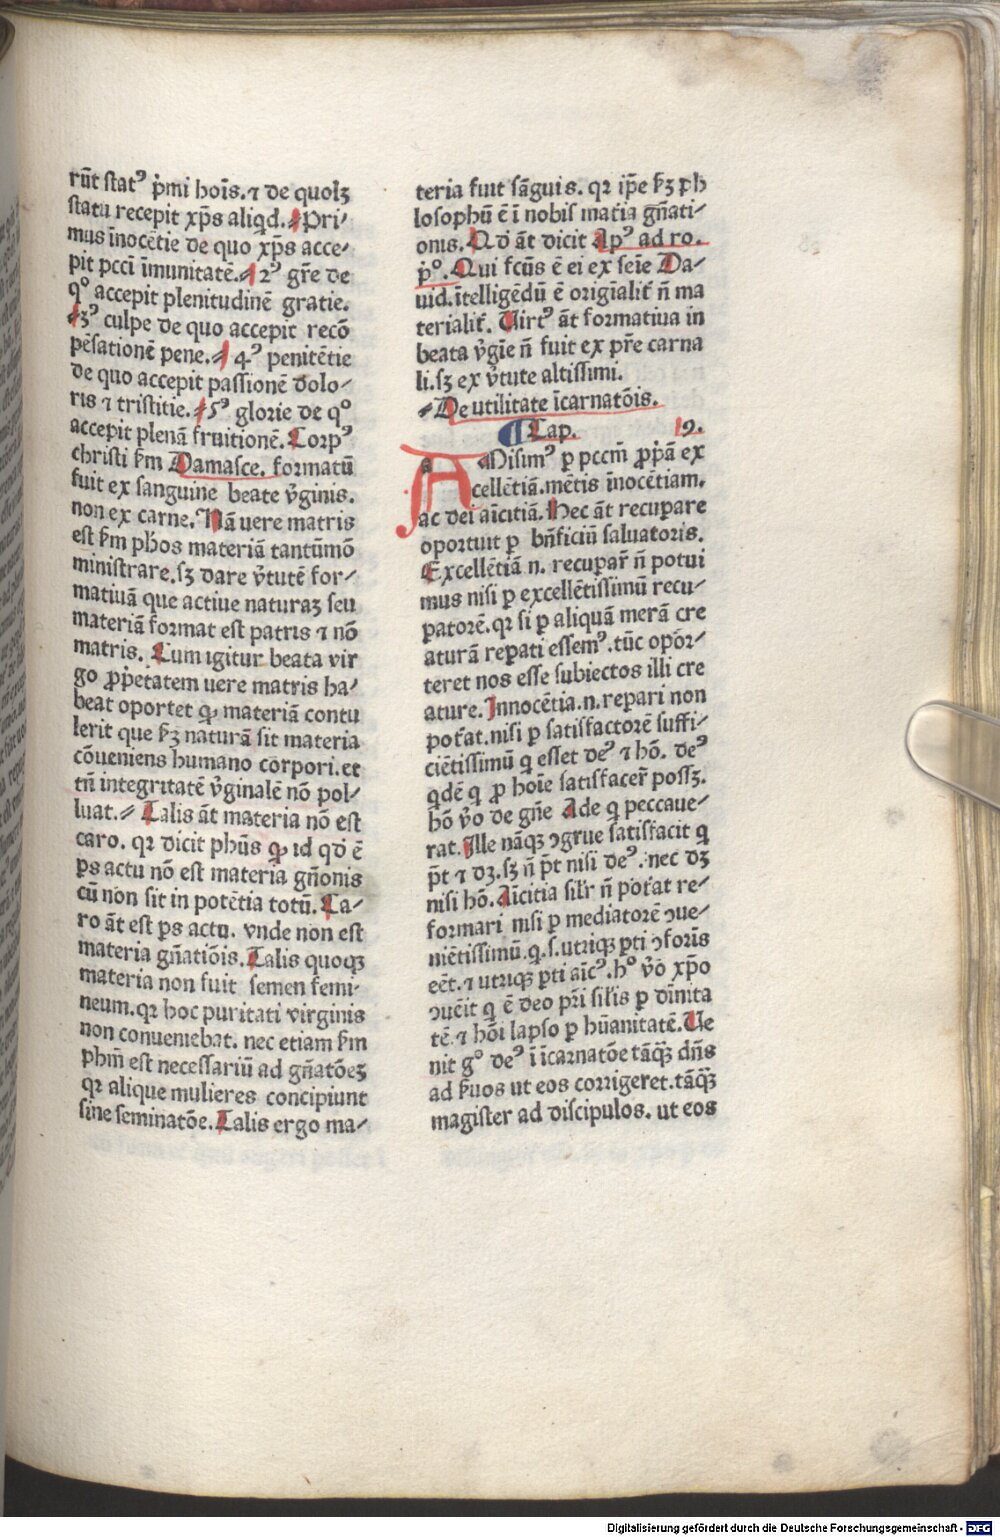 rūt statꝰ p̄mi hoīs. ⁊ de quolꝫ
statu recepit xp̄s aliqd. Pri⸗
mus īnocētie de quo xp̄s acce⸗
pit pcc̄i īmunitatē. 2ꝰ gr̄e de
q° accepit plenitudinē gratie.
3ꝰ culpe de quo accepit recō
pēsationē pene. 4ꝰ penitētie
de quo accepit passionē dolo⸗
ris ⁊ tristitie. 5ꝰ glorie de q°
accepit plenā fruitionē. Corpꝰ
christi ẜm Damasce. formatū
fuit ex sanguine beate v̄ginis.
non ex carne. Nā uere matris
est ẜm ph̄os materiā tantūmō
ministrare. sꝫ dare v̄tutē for⸗
matiuā que actiue naturaꝫ seu
materiā format est patris ⁊ nō
matris. Cum igitur beata vir
go ꝓp̄etatem uere matris ha⸗
beat oportet ꝙ materiā contu
lerit que ẜꝫ naturā sit materia
cōueniens humano corpori. et
tn̄ integritatē v̄ginalē nō pol⸗
luat. Talis āt materia nō est
caro. qꝛ dicit ph̄us ꝙ id qd̄ ē
ꝑs actu nō est materia gn̄onis
cū non sit in potētia totū. Ca⸗
ro āt est ꝑs actu. vnde non est
materia gn̄atiōis. Talis quoqꝫ
materia non fuit semen femi⸗
neum. qꝛ hoc puritati virginis
non conueniebat. nec etiam ẜm
phm̄ est necessariū ad gn̄atōeꝫ
qꝛ alique mulieres concipiunt
sine seminatōe. Talis ergo ma⸗
teria fuit sāguis. qꝛ ip̄e ẜꝫ ph
losophū ē ī nobis mat̄ia gn̄ati⸗
onis. Qd̄ āt dicit Apꝰ ad ro.
p̄°. Qui fc̄us ē ei ex seīe Da⸗
uid. ītelligēdū ē origīalit̄ n̄ ma
terialit̄. Virtꝰ āt formatiua in
beata v̄gīe n̄ fuit ex pr̄e carna
li. sꝫ ex v̄tute altissimi.
De utilitate īcarnatōis.
Cap. 19.
AMisimꝰ ꝑ pccm̄ ꝓp̄ā ex
cellētiā. mētis īnocētiam.
ac dei aīcitiā. Hec āt recuꝑare
oportuit ꝑ bn̄ficiū saluatoris.
Excellētiā n. recuꝑar̄ n̄ potui
mus nisi ꝑ excellētissimū recu⸗
ꝑatorē. qꝛ si ꝑ aliquā merā cre
aturā reꝑati essemꝰ. tūc opor⸗
teret nos esse subiectos illi cre
ature. Innocētia. n. reꝑari non
pot̄at. nisi ꝑ satisfactorē suffi⸗
ciētissimū q esset deꝰ ⁊ hō. deꝰ
qdē q ꝓ hoīe satisfacer̄ possꝫ.
hō v̄o de gn̄e Ade q peccaue⸗
rat. Ille nāqꝫ ꝯgrue satisfacit q
p̄t ⁊ dꝫ. sꝫ n̄ p̄t nisi deꝰ. nec dꝫ
nisi hō. Aīcitia sil̄r n̄ pot̄at re⸗
formari nisi ꝑ mediatorē ꝯue⸗
niētissimū. q. s. utriqꝫ ꝑti ꝯforīs
eēt. ⁊ utriqꝫ ꝑti aīcꝰ. h° v̄o xp̄o
ꝯuēit q ē deo pr̄i sil̄is ꝑ dīnita
tē. ⁊ hōi lapso ꝑ hūanitatē. Ue
nit g° deꝰ ī īcarnatōe tāqꝫ dn̄s
ad ẜuos ut eos corrigeret. tāqꝫ
magister ad discipulos. ut eos
Digitalisierung gefördert durch die Deutsche Forschungsgemeinschaft - DFG